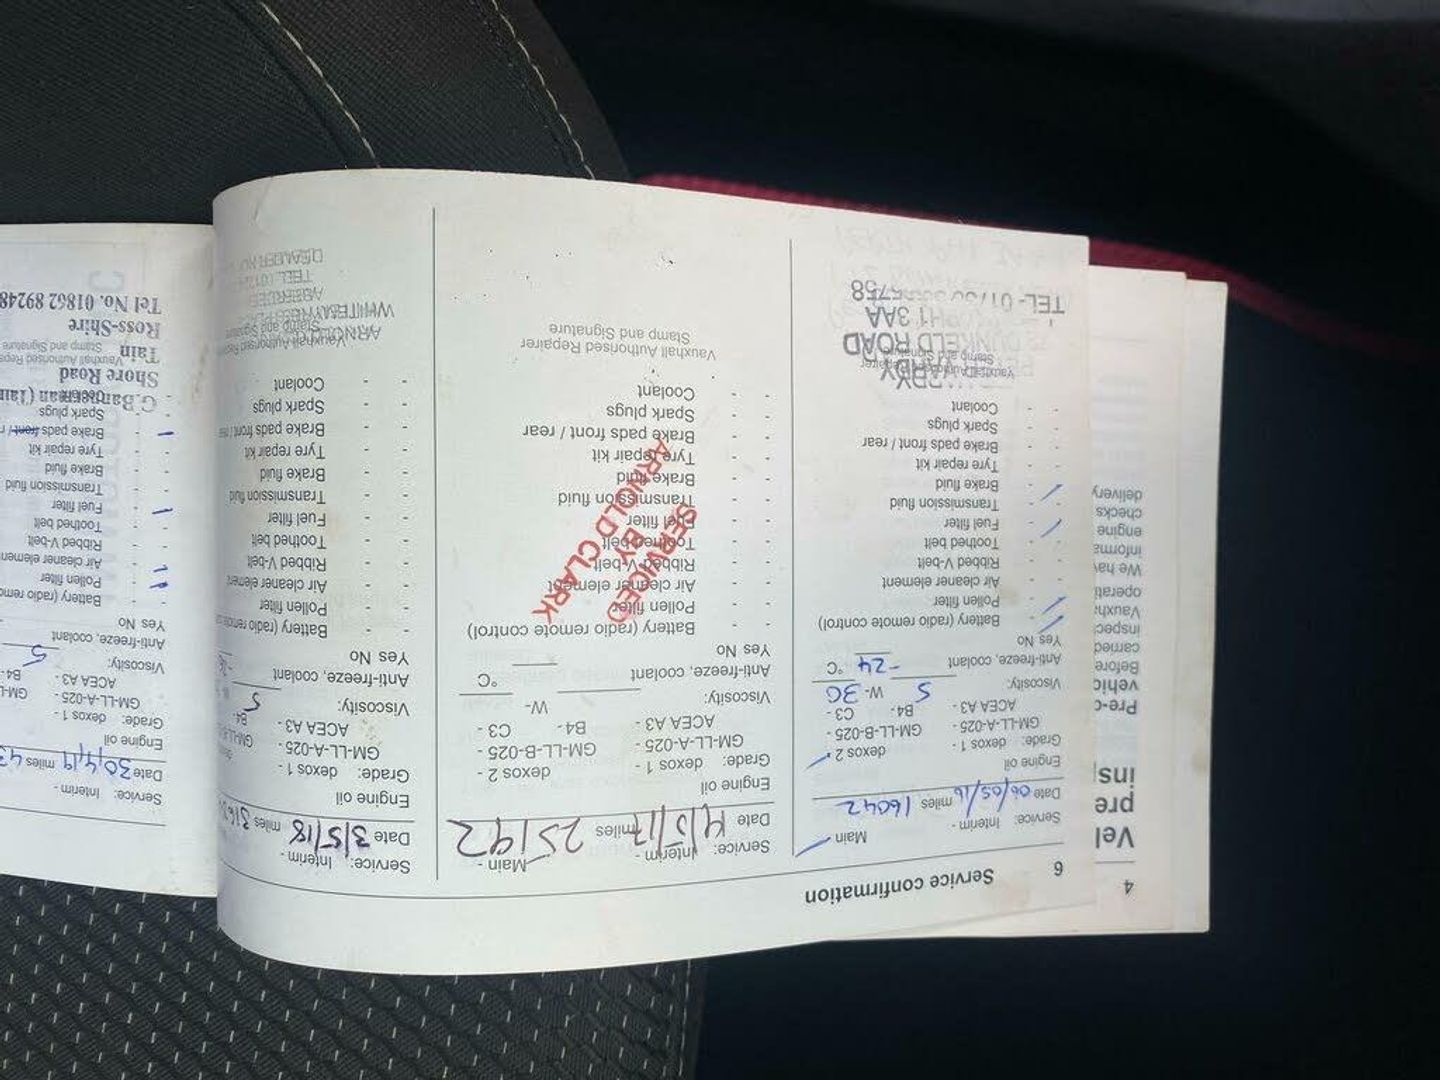 4
Vel
pre
ins
Pre-c
vehic
Before
carried
inspec
Vauxha
operati
We hav
informa
engine
checks
delivery
6
Service confirmation
Service: Interim - Main
Date 06/05/16 miles 16042
Engine oil
Grade: dexos 1 - dexos 2 -
GM-LL-A-025 - GM-LL-B-025 -
ACEA A3 - B4- C3 -
Viscosity: 5 W- 30
Anti-freeze, coolant -24 °C
Yes No
- - Battery (radio remote control)
- - Pollen filter
- - Air cleaner element
- - Ribbed V-belt
- - Toothed belt
- - Fuel filter
- - Transmission fluid
- - Brake fluid
- - Tyre repair kit
- - Brake pads front / rear
- - Spark plugs
- - Coolant
Vauxhall Authorised Repairer
Stamp and Signature
DUNKELD ROAD
PH1 3AA
Service: Interim - Main -
miles 25192
Engine oil
Grade: dexos 1 - dexos 2 -
GM-LL-A-025 - GM-LL-B-025 -
ACEA A3 - B4- C3 -
Viscosity: W-
Anti-freeze, coolant °C
Yes No
- - Battery (radio remote control)
- - Pollen filter
- - Air cleaner element
- - Ribbed V-belt
- - Toothed belt
- - Fuel filter
- - Transmission fluid
- - Brake fluid
- - Tyre repair kit
- - Brake pads front / rear
- - Spark plugs
- - Coolant
SERVICED
BY
ARNOLD CLARK
Vauxhall Authorised Repairer
Stamp and Signature
Service: Interim
Date 3/5/18 miles
Engine oil
Grade: dexos 1 -
GM-LL-A-025 -
ACEA A3 - B4
Viscosity: 5
Anti-freeze, coolant
Yes No
- - Battery (radio remote
- - Pollen filter
- - Air cleaner element
- - Ribbed V-belt
- - Toothed belt
- - Fuel filter
- - Transmission fluid
- - Brake fluid
- - Tyre repair kit
- - Brake pads front /
- - Spark plugs
- - Coolant
Vauxhall Authorised
Stamp and Signature
Service: Interim -
Date 30/4/19 miles 43
Engine oil
Grade: dexos 1 -
GM-LL-A-025 - GM-L
ACEA A3 - B4-
Viscosity: 5
Anti-freeze, coolant
Yes No
- - Battery (radio remo
- - Pollen filter
- - Air cleaner elemen
- - Ribbed V-belt
- - Toothed belt
- - Fuel filter
- - Transmission fluid
- - Brake fluid
- - Tyre repair kit
- - Brake pads front / r
- - Spark plugs
G.Bannerman (Tain
Shore Road
Vauxhall Authorised Repa
Tain
Stamp and Signature
Ross-Shire
Tel No. 01862 89248